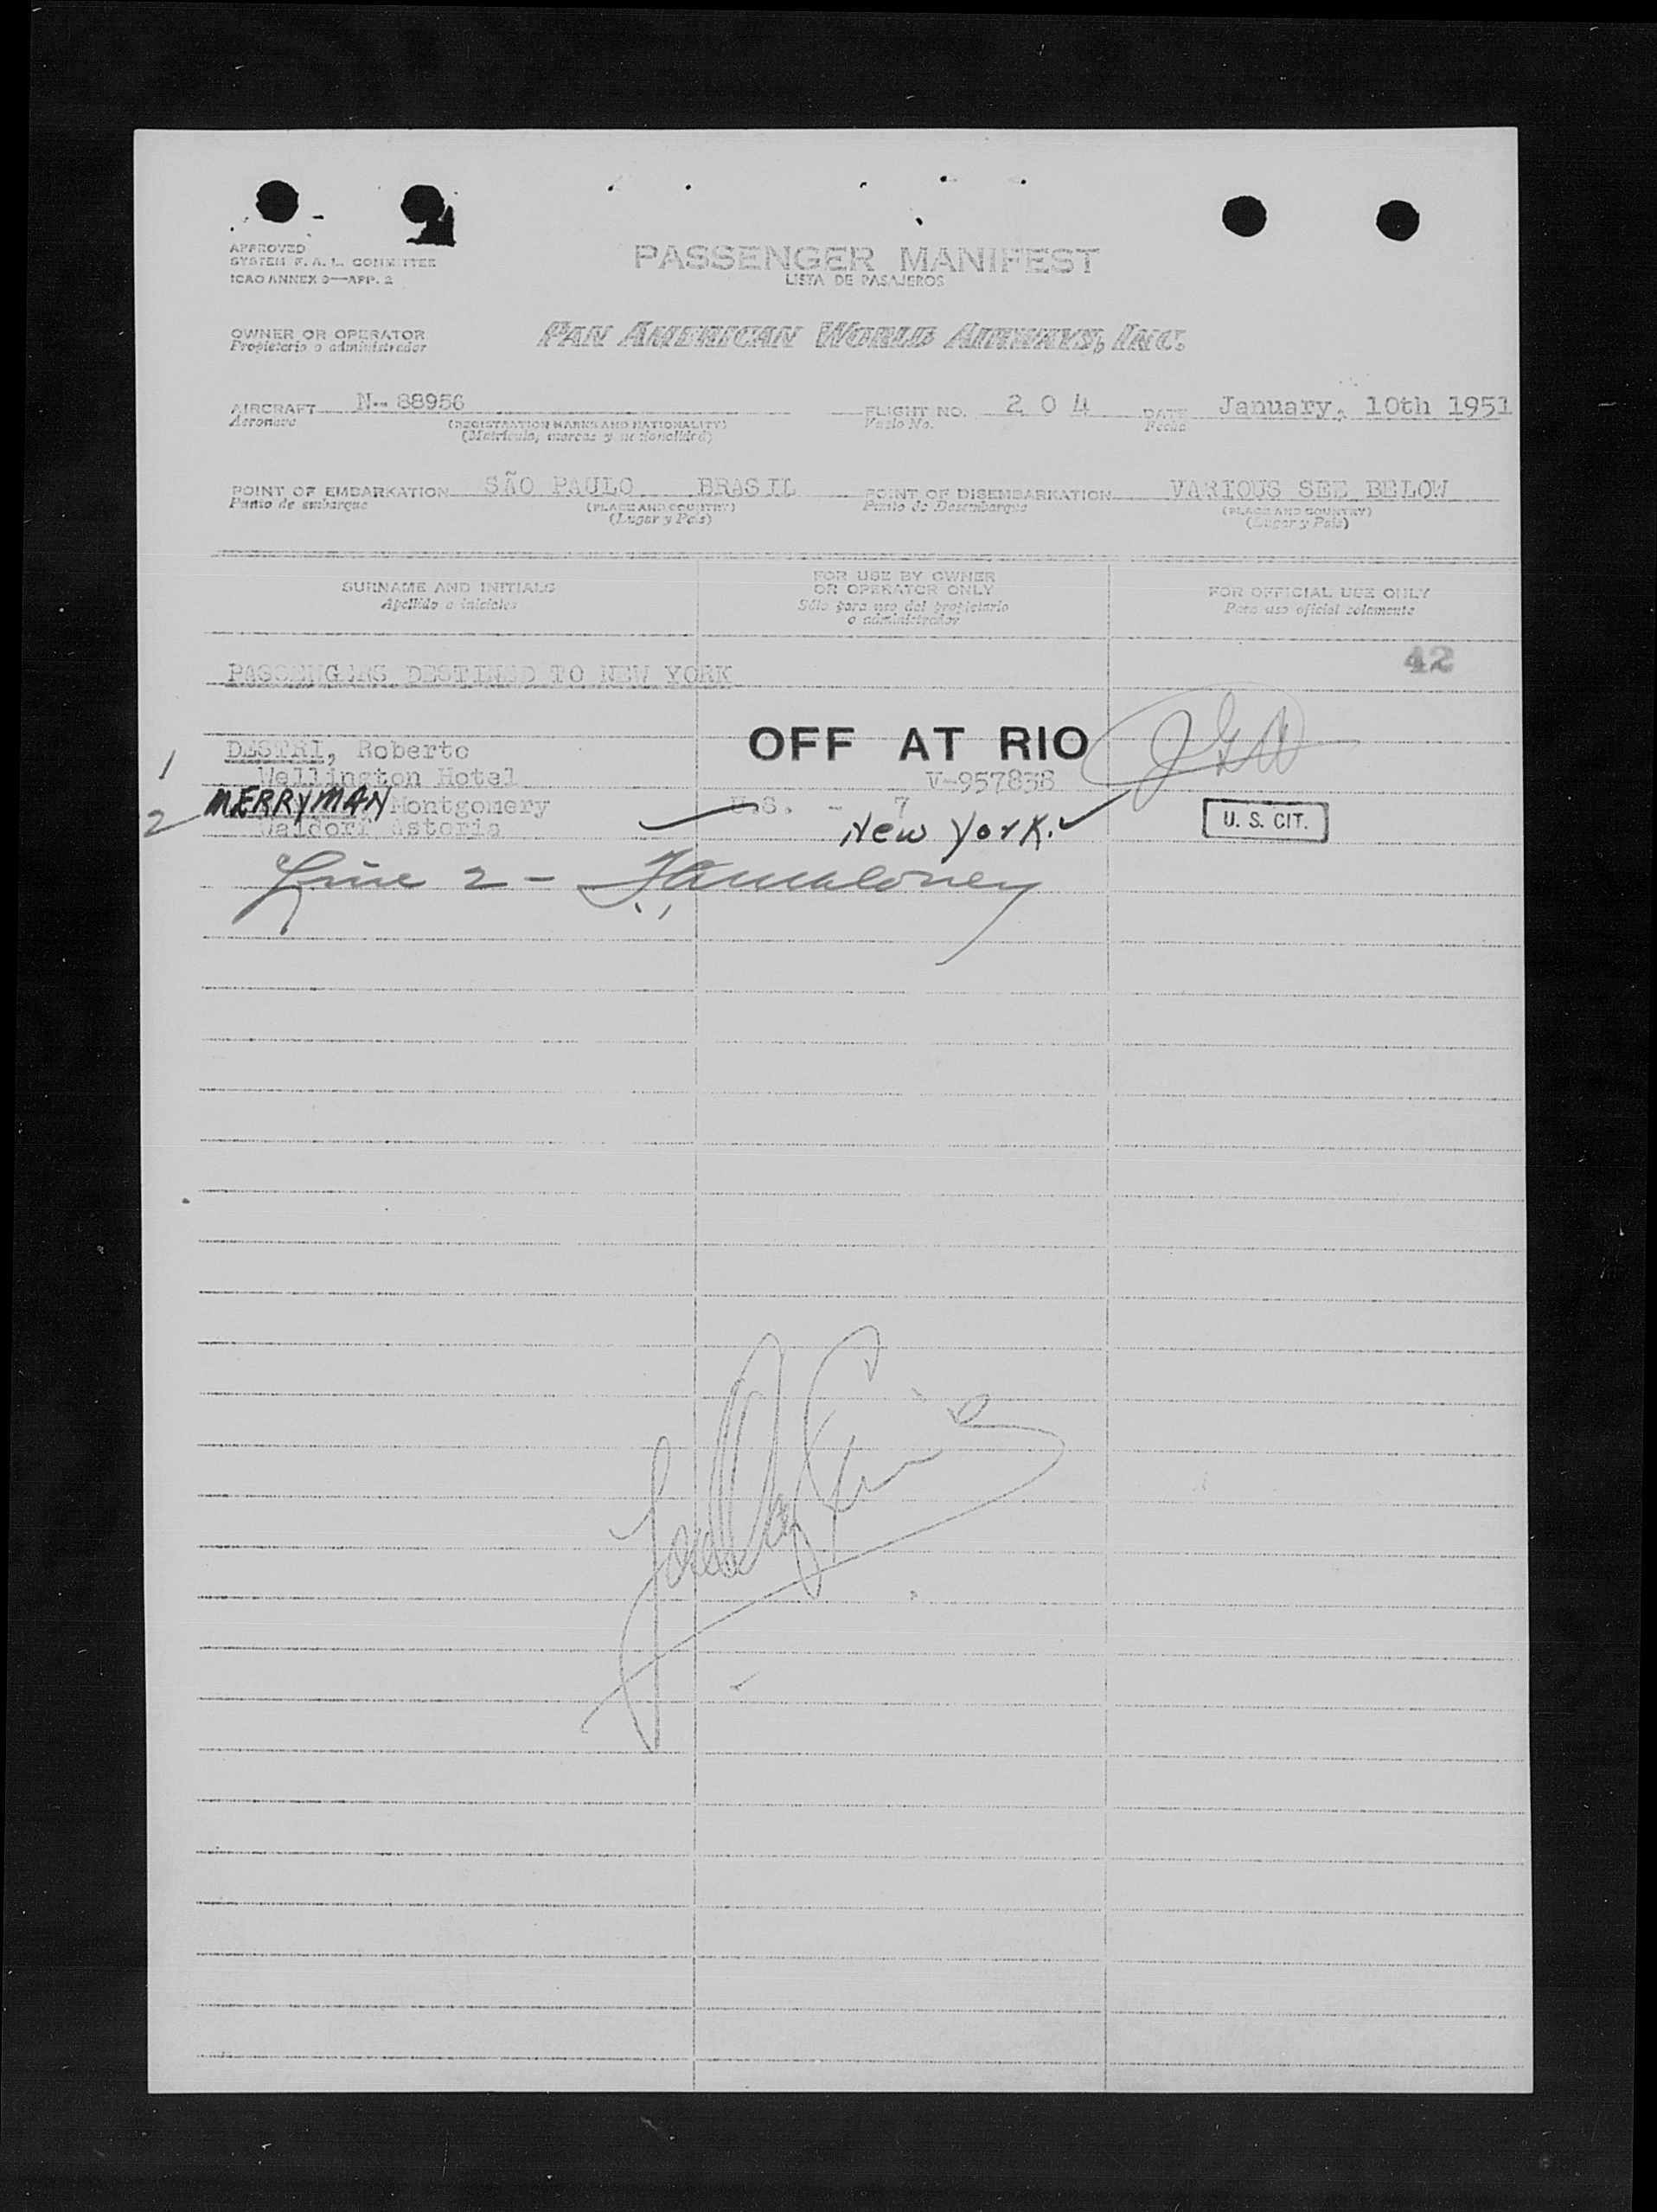 APPROVED
SYSTEM F. A. L. COMMITTEE
ICAO ANNEX 9—APP. 2
PASSENGER MANIFEST
LISTA DE PASAJEROS
OWNER OR OPERATOR
Propietario o administrador
PAN AMERICAN WORLD AIRWAYS, INC.
AIRCRAFT N-88956 FLIGHT NO. 2 0 4 DATE January, 10th 1951
Aeronave (REGISTRATION MARKS AND NATIONALITY) Vuelo No. Fecha
(Matrícula, marcas y nacionalidad)
POINT OF EMBARKATION SÃO PAULO BRASIL POINT OF DISEMBARKATION VARIOUS SEE BELOW
Punto de embarque (PLACE AND COUNTRY) Punto de Desembarque (PLACE AND COUNTRY)
(Lugar y País) (Lugar y País)
SURNAME AND INITIALS
Apellido e iniciales
FOR USE BY OWNER
OR OPERATOR ONLY
Sólo para uso del propietario
o administrador
FOR OFFICIAL USE ONLY
Para uso oficial solamente
42
PASSENGERS DESTINED TO NEW YORK
1 DESTRI, Roberto OFF AT RIO
Wellington Hotel V-957838
2 MERRYMAN Montgomery U.S. - 7 U. S. CIT.
Waldorf Astoria New York.
Line 2 -